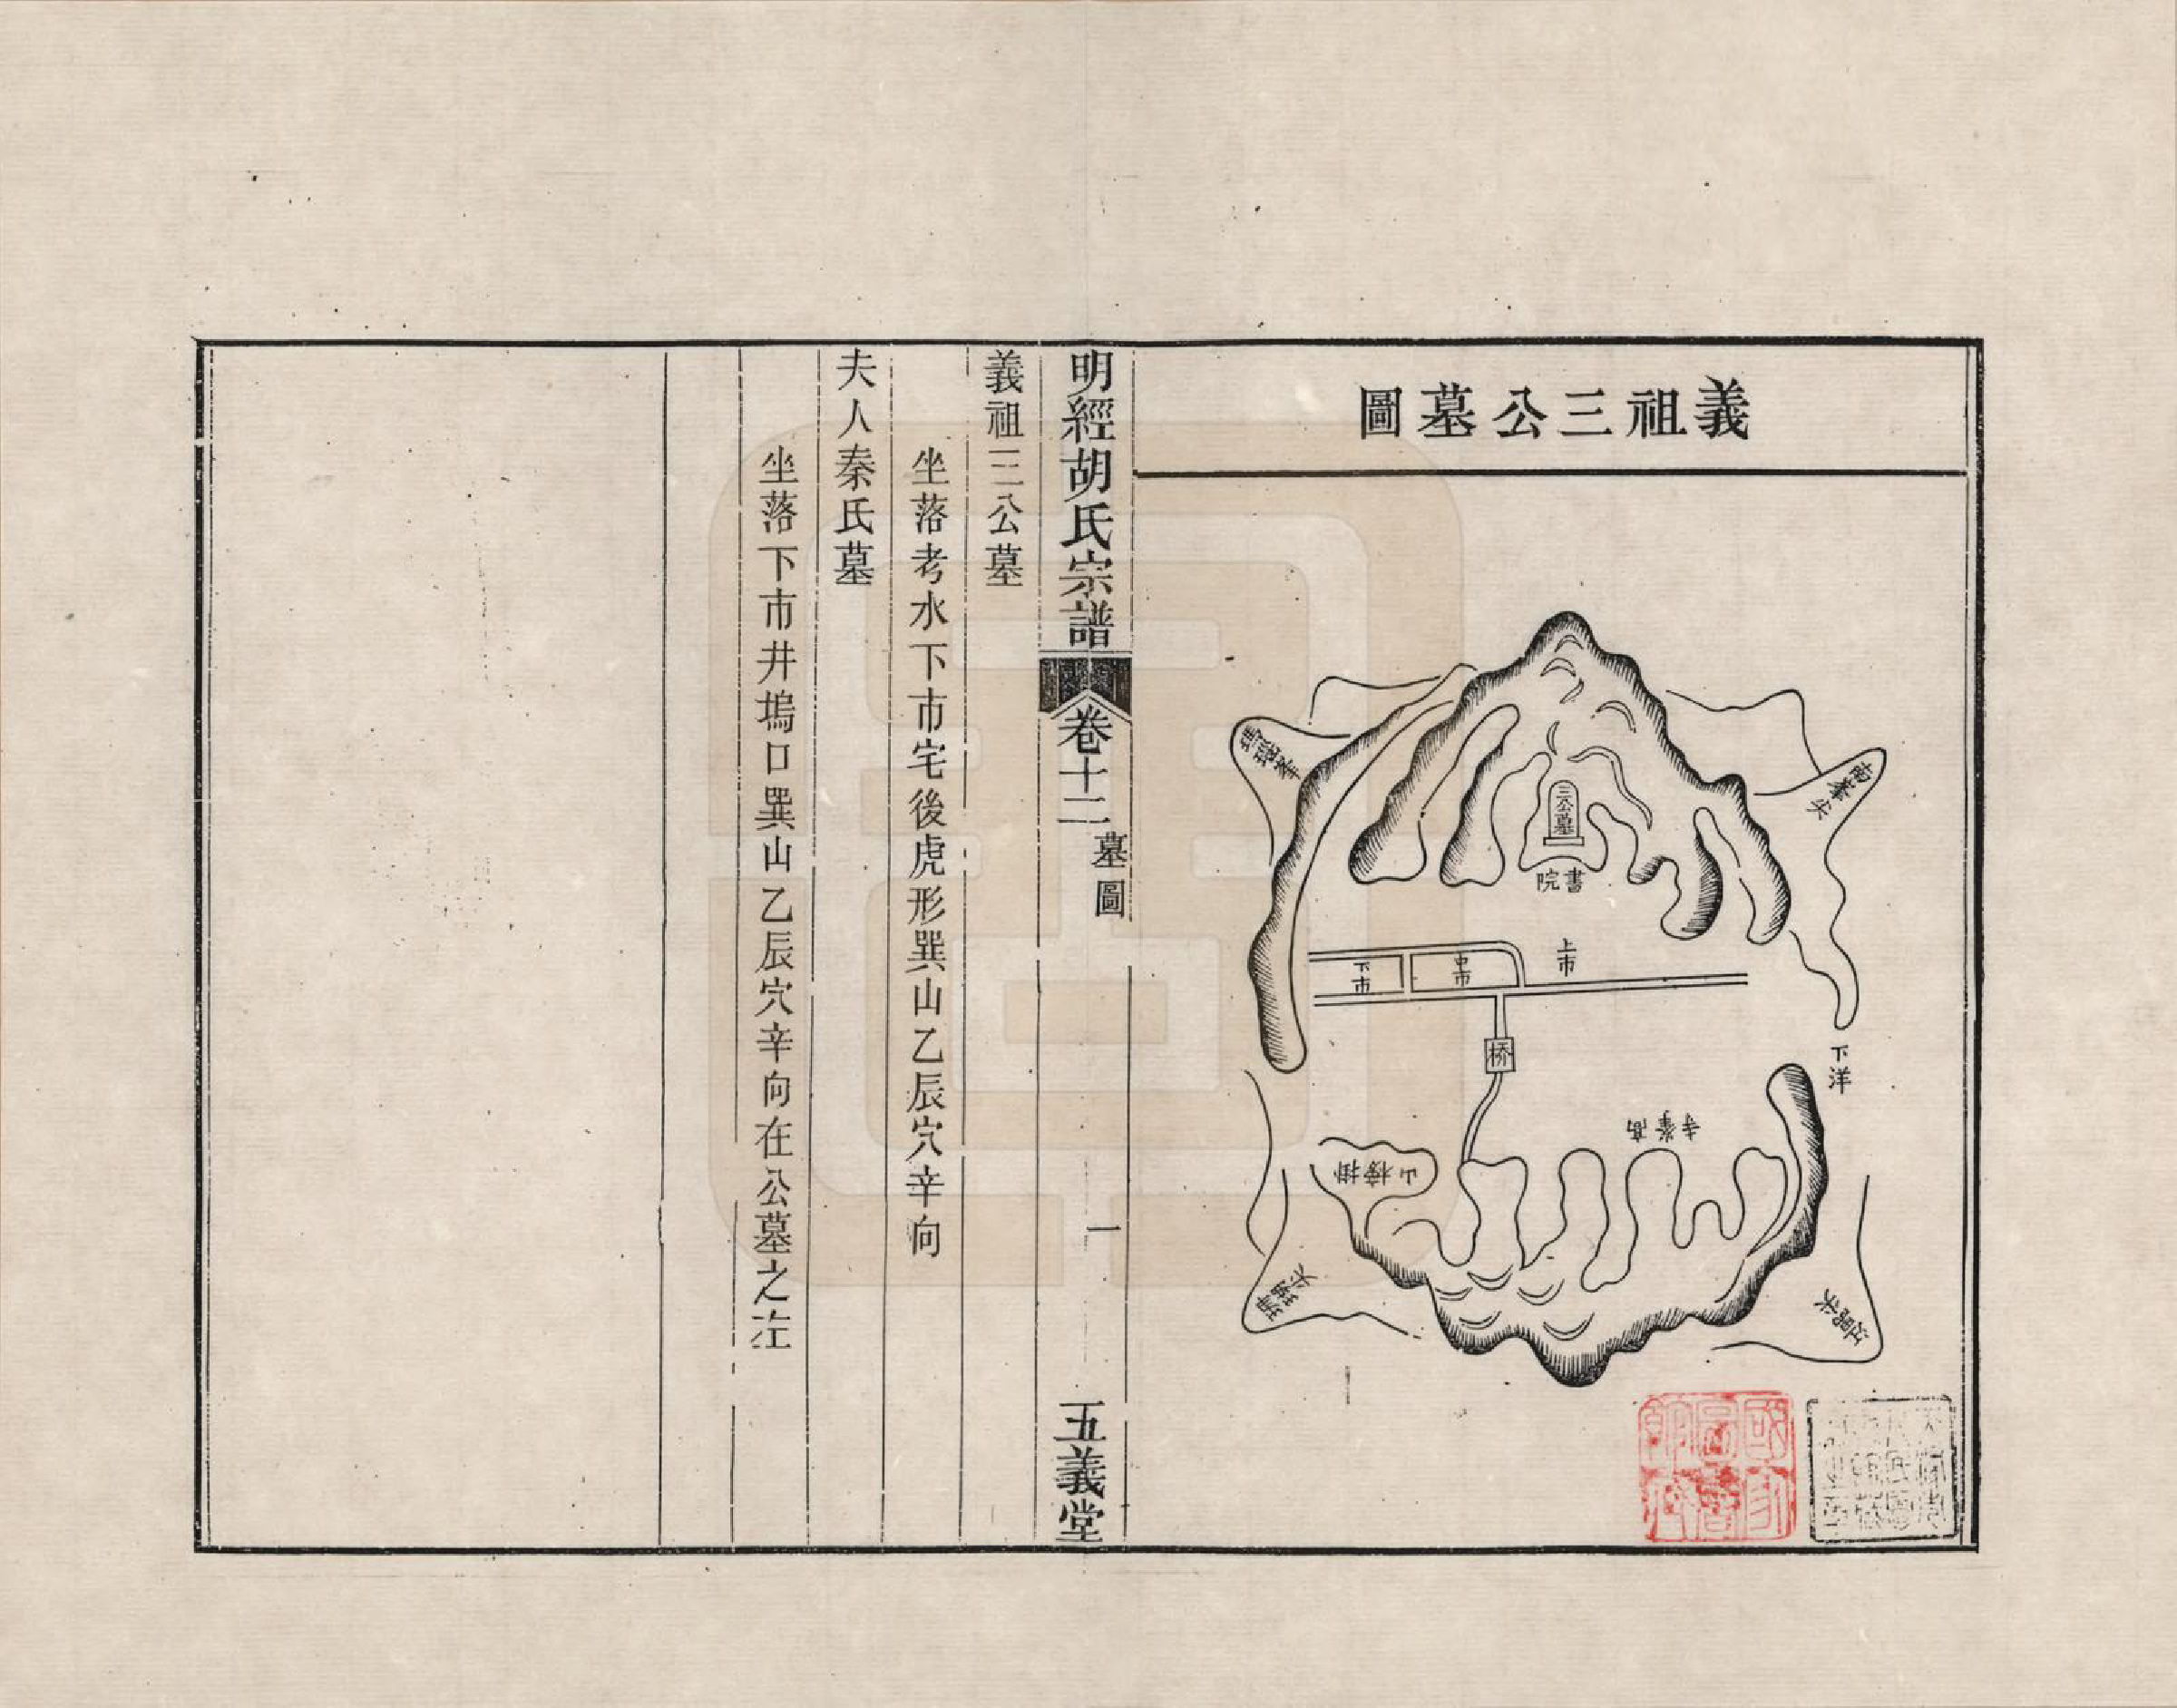 義祖三公墓圖
南峯尖
三公墓
書院
上市
中市
下市
桥
下洋
高峯寺
掛榜山
明經胡氏宗譜
卷十二
墓圖
一
五義堂
義祖三公墓
坐落考水下市宅後虎形巽山乙辰穴辛向
夫人秦氏墓
坐落下市井塢口巽山乙辰穴辛向在公墓之左